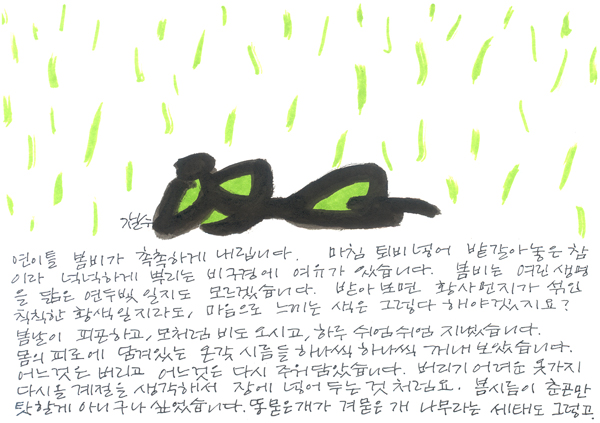 철수
연이틀 봄비가 촉촉하게 내립니다. 마침 퇴비넣어 밭갈아놓은 참
이라 넉넉하게 뿌리는 비구경에 여유가 있습니다. 봄비는 여린 생명
을 닮은 연두빛 일지도 모르겠습니다. 받아 보면 황사먼지가 섞인
칙칙한 황색일지라도, 마음으로 느끼는 색은 그렇다 해야겠지요?
봄날이 피곤하고, 모처럼 비도 오시고, 하루 쉬엄쉬엄 지냈습니다.
몸의 피로에 담겨있는 온갖 시름들 하나씩 하나씩 꺼내 보았습니다.
어느것은 버리고 어느것은 다시 주워담았습니다. 버리기 어려운 옷가지
다시올 계절을 생각해서 장에 넣어 두는 것 처럼요. 봄시름이 춘곤만
탓할게 아니구나 싶었습니다. 똥묻은개가 겨묻은 개 나무라는 세태도 그렇고.